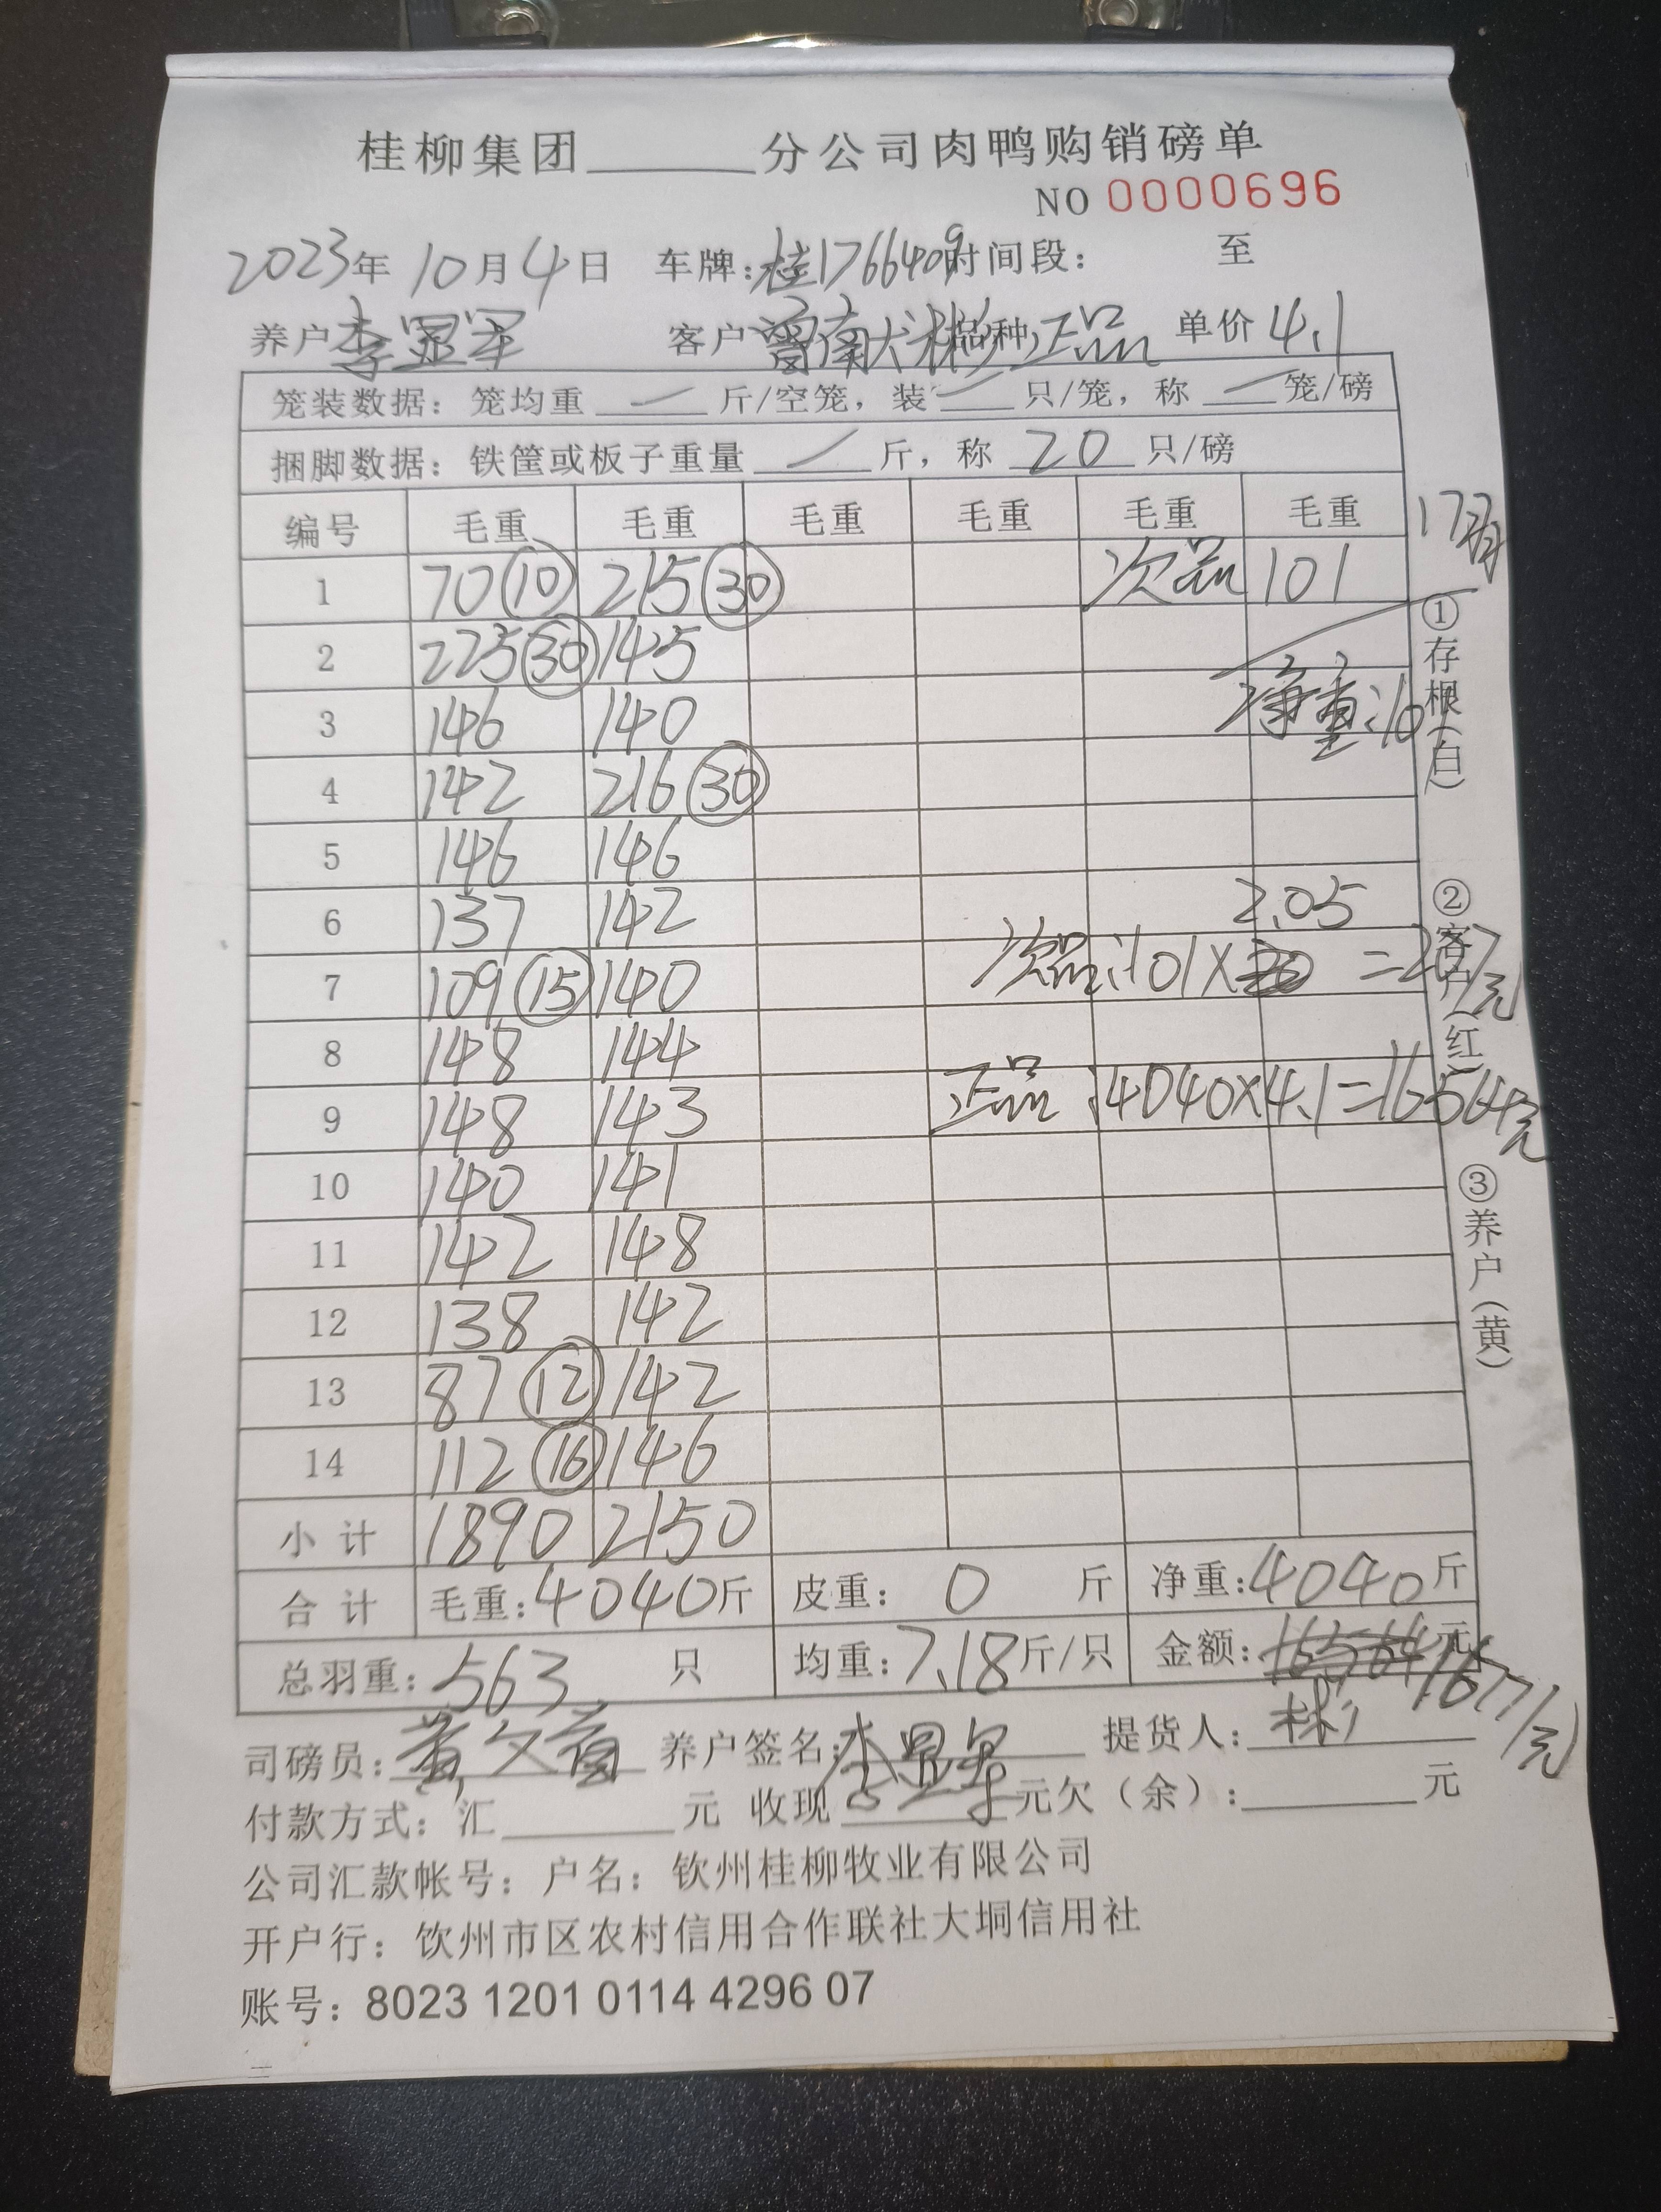 桂柳集团______分公司肉鸭购销磅单
NO 0000696
2023年 10月4日 车牌：桂1766409 时间段： 至
养户 李显军 客户 品种 正品 单价 4.1
笼装数据：笼均重 — 斤/空笼，装 — 只/笼，称 — 笼/磅
捆脚数据：铁筐或板子重量 — 斤，称 20 只/磅
编号 毛重 毛重 毛重 毛重 毛重 毛重
1 70 ⑩ 215 ㉚ 次品 101
2 225 ㉚ 145
3 146 140 净重：101
4 142 216 ㉚
5 146 146
6 137 142 2.05
7 109 ⑮ 140 次品：101× =207元
8 148 144
9 148 143 正品：4040×4.1=16564元
10 140 141
11 142 148
12 138 142
13 87 ⑫ 142
14 112 ⑯ 146
小计 1890 2150
合计 毛重：4040斤 皮重： 0 斤 净重：4040斤
总羽重：563 只 均重：7.18斤/只 金额：16564元 16771元
司磅员： 养户签名：李显军 提货人：
付款方式：汇______元 收现______元欠（余）：______元
公司汇款帐号：户名：钦州桂柳牧业有限公司
开户行：钦州市区农村信用合作联社大垌信用社
账号：8023 1201 0114 4296 07
①存根（白）
②客户（红）
③养户（黄）